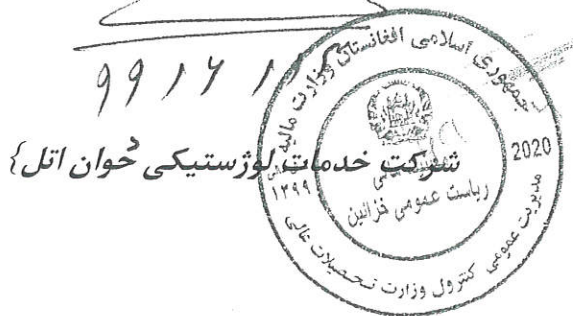 99 1 6 1
شرکت خدمات لوژستیکی خُوان اتل}
جمهوری اسلامی افغانستان وزارت مالیه
2020
۱۳۹۹
ریاست عمومی خزائین
مدیریت عمومی کنترول وزارت تحصیلات عالی